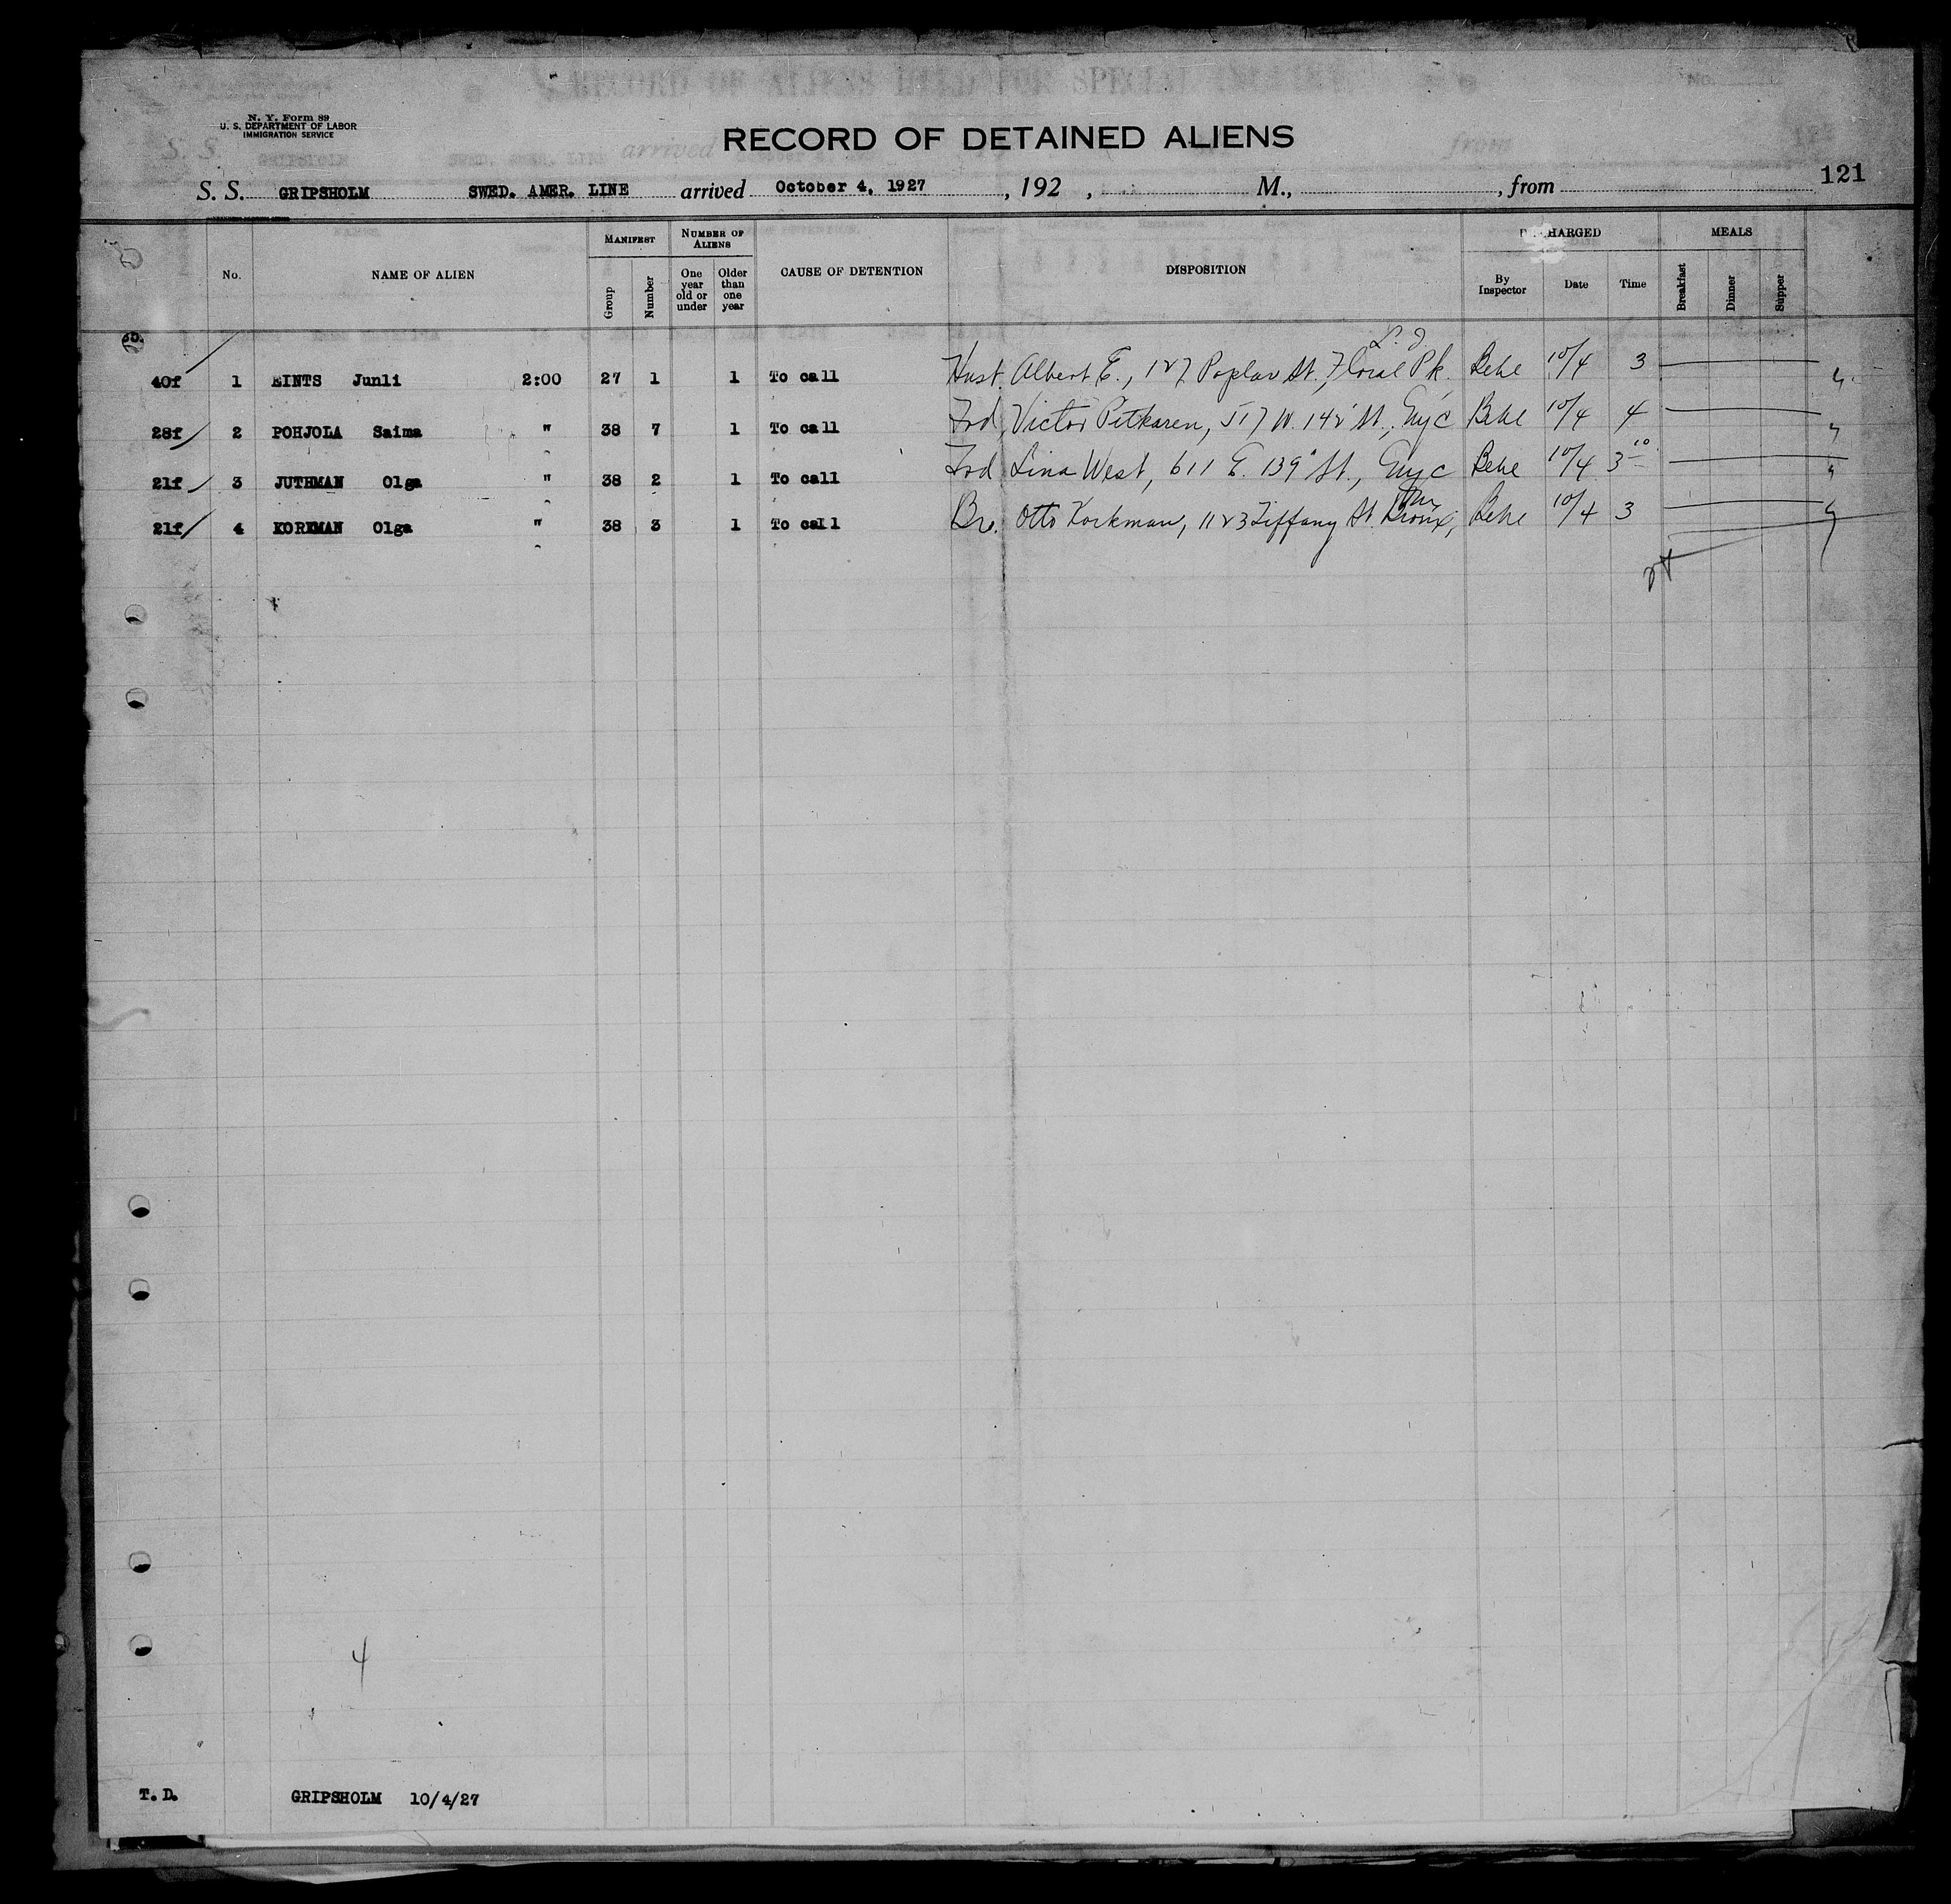 N. Y. Form 89
U. S. DEPARTMENT OF LABOR
IMMIGRATION SERVICE
RECORD OF DETAINED ALIENS
121
S. S. GRIPSHOLM SWED. AMER. LINE arrived October 4, 1927, 192 , M., , from
No. NAME OF ALIEN MANIFEST Group Number NUMBER OF ALIENS One year old or under Older than one year CAUSE OF DETENTION DISPOSITION HARGED By Inspector Date Time MEALS Breakfast Dinner Supper
L. I.
40f 1 EINTS Junli 2:00 27 1 1 To call Hust. Albert E., 127 Poplar St. Floral Pk. 10/4 3
28f 2 POHJOLA Saima " 38 7 1 To call Frd Victor Pitkaren, 517 W. 142" St., NYC 10/4 4
21f 3 JUTHMAN Olga " 38 2 1 To call Frd Lina West, 611 E. 139" St., NYC 10/4 3 10
21f 4 KORKMAN Olga " 38 3 1 To call Bro. Otto Korkman, 1123 Tiffany St. Bronx, 10/4 3
4
T. D. GRIPSHOLM 10/4/27